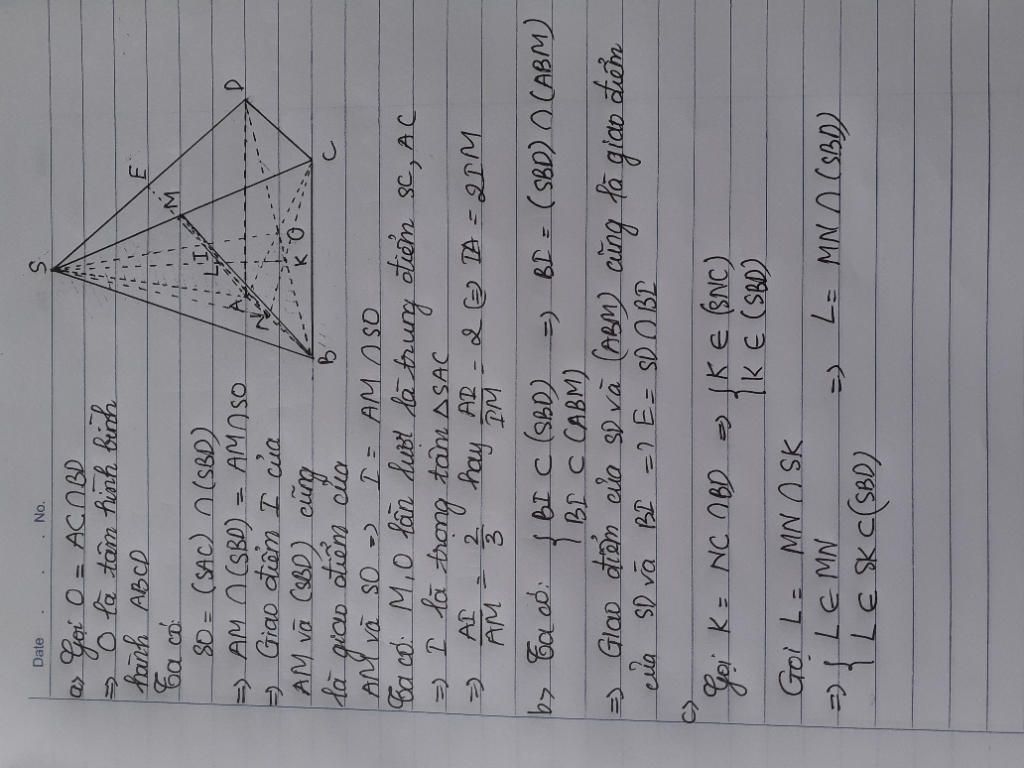 Date . . . No.
a> Gọi O = AC ∩ BD
=> O là tâm hình bình
hành ABCD
Ta có:
SO = (SAC) ∩ (SBD)
=> AM ∩ (SBD) = AM ∩ SO
=> Giao điểm I của
AM và (SBD) cũng
là giao điểm của
AM và SO => I = AM ∩ SO
Ta có: M, O lần lượt là trung điểm SC, AC
=> I là trọng tâm △SAC
=> AI/AM = 2/3 hay AI/IM = 2 (=) IA = 2IM
b> Ta có: { BI ⊂ (SBD)
BI ⊂ (ABM) => BI = (SBD) ∩ (ABM)
=> Giao điểm của SD và (ABM) cũng là giao điểm
của SD và BI => E = SD ∩ BI
c>
Gọi K = NC ∩ BD => { K ∈ (SNC)
K ∈ (SBD)
Gọi L = MN ∩ SK
=> { L ∈ MN
L ∈ SK ⊂ (SBD) => L = MN ∩ (SBD)
S
E
D
M
I
L
A
N
O
K
C
B